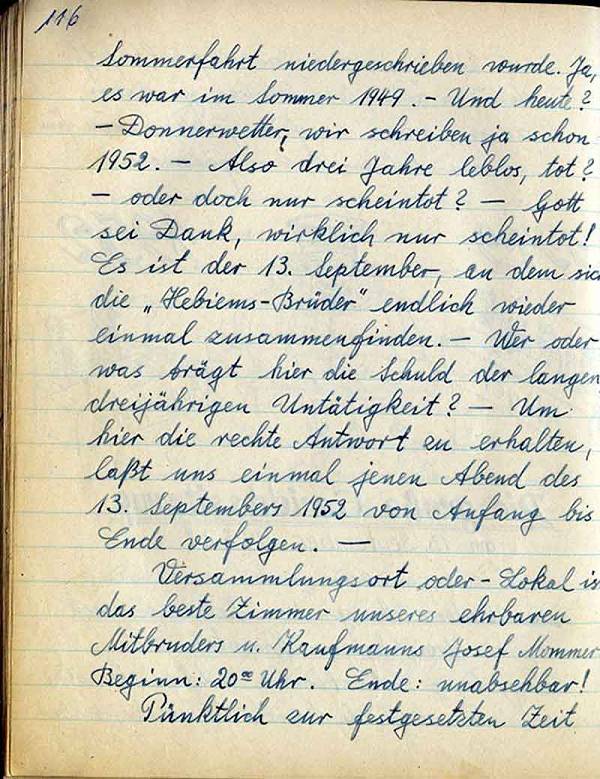 116
Sommerfahrt niedergeschrieben wurde. Ja,
es war im Sommer 1949. – Und heute?
– Donnerwetter, wir schreiben ja schon
1952. – Also drei Jahre leblos, tot?
– oder doch nur scheintot? – Gott
sei Dank, wirklich nur scheintot!
Es ist der 13. September, an dem sic
die „Hebiems-Brüder" endlich wieder
einmal zusammenfinden. – Wer oder
was trägt hier die Schuld der langen
dreijährigen Untätigkeit? – Um
hier die rechte Antwort zu erhalten,
laßt uns einmal jenen Abend des
13. Septembers 1952 von Anfang bis
Ende verfolgen. –
Versammlungsort oder-Lokal is
das beste Zimmer unseres ehrbaren
Mitbruders u. Kaufmanns Josef Mommer
Beginn: 20⁰⁰ Uhr. Ende: unabsehbar!
Pünktlich zur festgesetzten Zeit